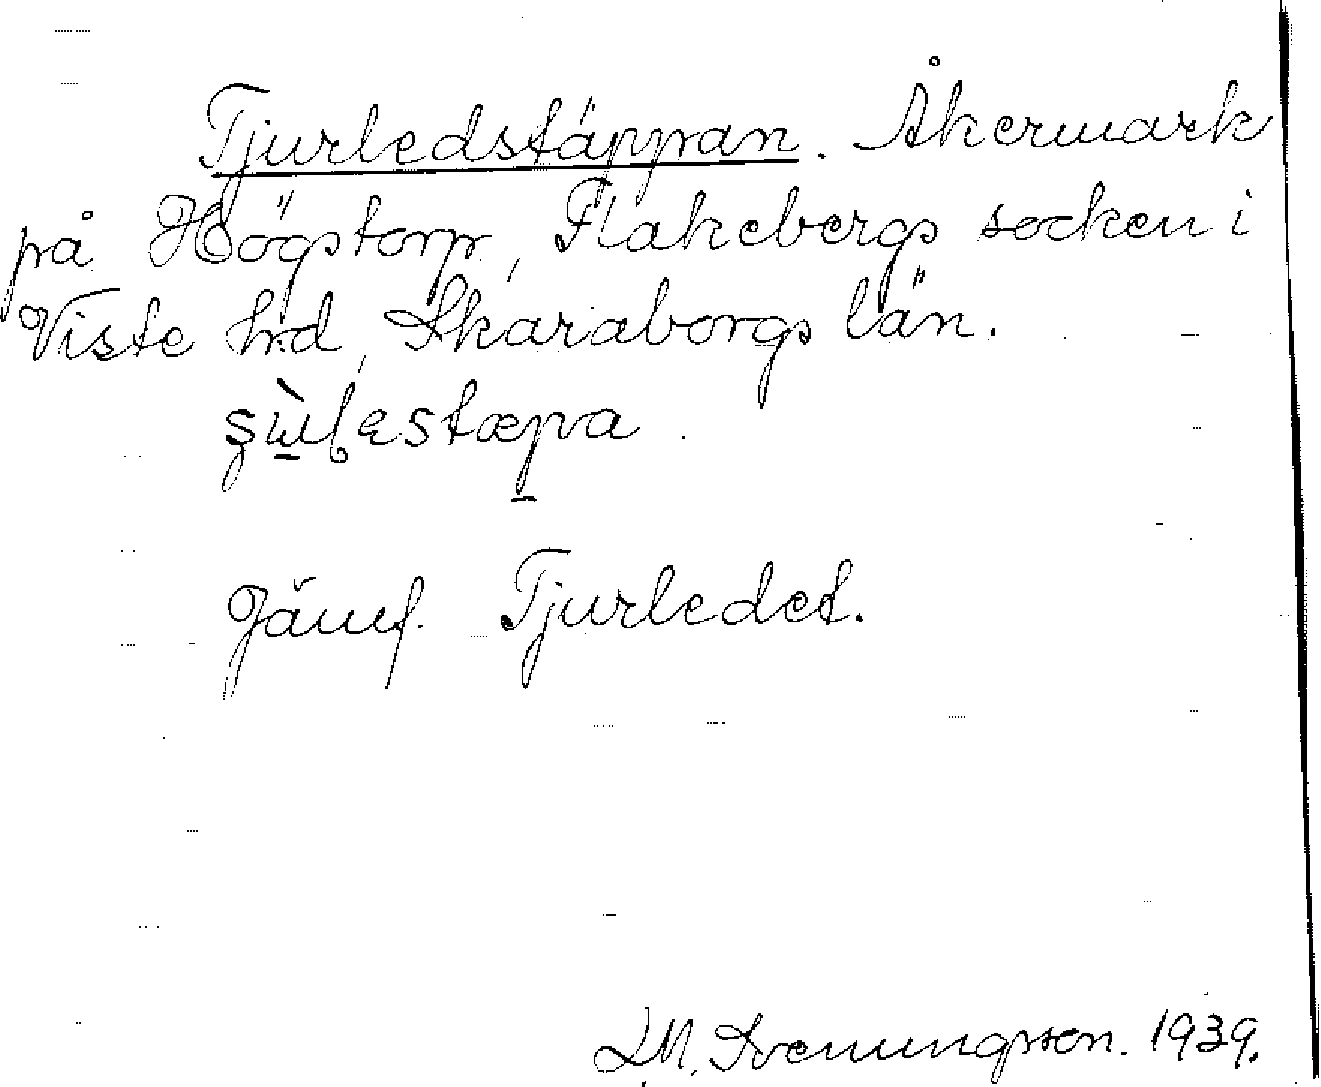 Tjurledstäppan. Åkermark
på Högstorp, Flakebergs socken i
Viste hd, Skaraborgs län.
Jämf. Tjurledet.
1939.